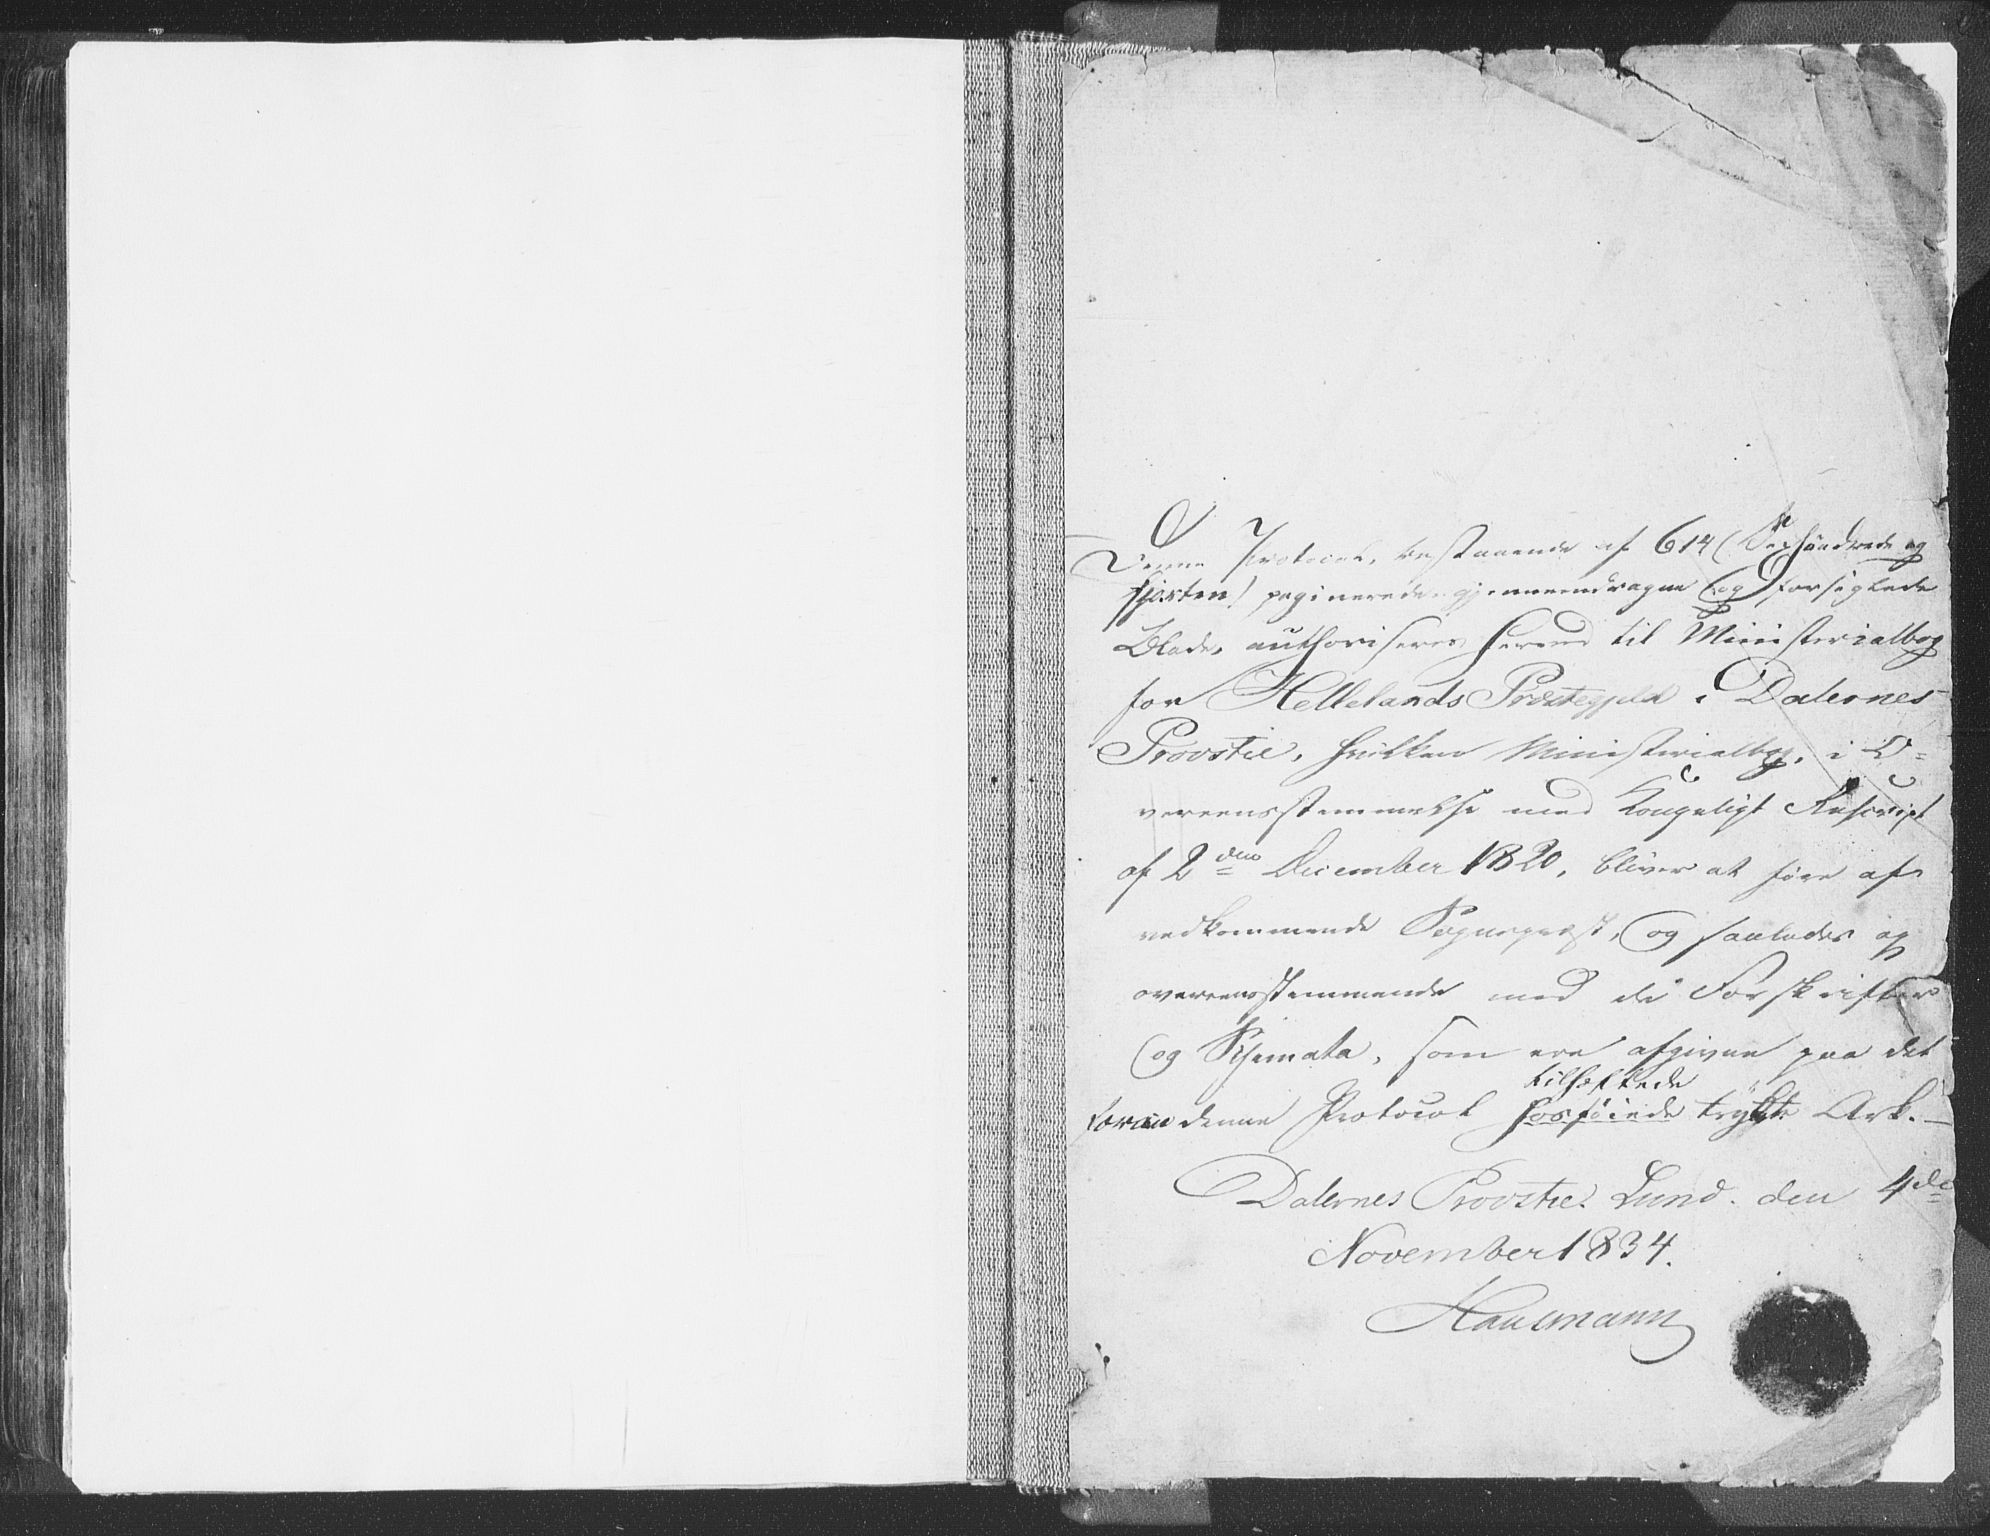 Denne Protocol, bestaaende af 614 (Sexhundrede og
fjorten) paginerede, gjennemdragne og forseglede
Blade, authoriseres herved til Ministerialbog
for Hellelands Præstegjeld i Dalernes
Provstie, hvilken Ministerialbog, i O=
vereensstemmelse med Kongeligt Rescript
af 2den December 1820, bliver at føre af
vedkommende Sognepræst, og saaledes og
overeensstemmende med de Forskrifter
og Schemata, som ere afgivne paa det
tilhæftede
foran denne Protocol hosføiede trykte Ark.—
Dalernes Provstie. Lund. den 4de
November 1834.
Hausmann